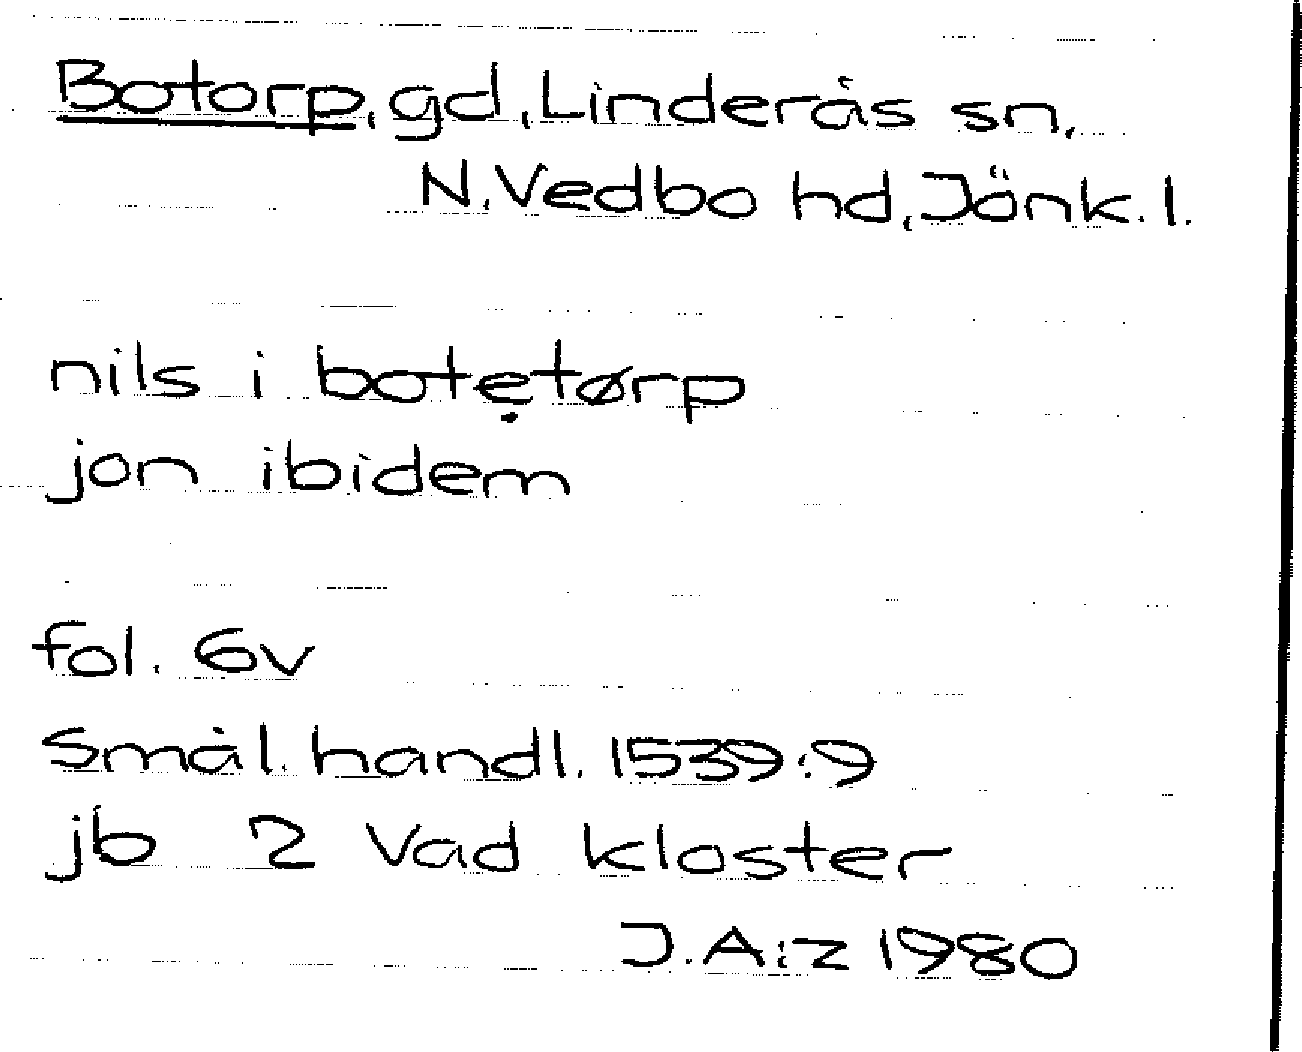 Botorp, gd, Linderås sn,
N. Vedbo hd, Jönk. l.
nils i botẹtørp
jon ibidem
fol. 6v
Smål. handl. 1539:9
jb 2 Vad kloster
J.A:z 1980